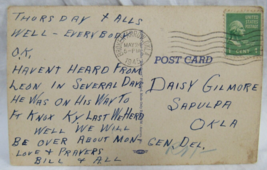 THURSDAY & ALLS
WELL - EVERY BODY
O.K.
HAVENT HEARD FROM
LEON IN SEVERAL DAYS
HE WAS ON HIS WAY TO
FT KNOX KY LAST WE HERD
WELL WE WILL
BE OVER ABOUT MON -
LOVE & PRAYERS
BILL & ALL
POST CARD
DAISY GILMORE
SAPULPA
OKLA
GEN. DEL.